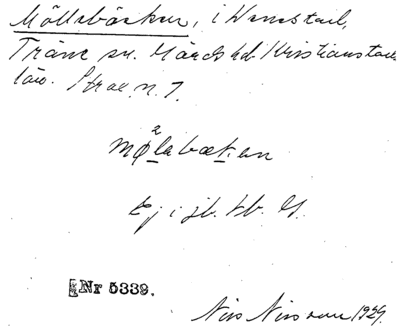 Möllebäcken, i Kunstail,
Träne sn. Gärds hd. Kristianstads
län. Strax n. 1.
mølabækan
Ej i jb. kb. G.
Nr 5339.
Nils Nilsson 1929.